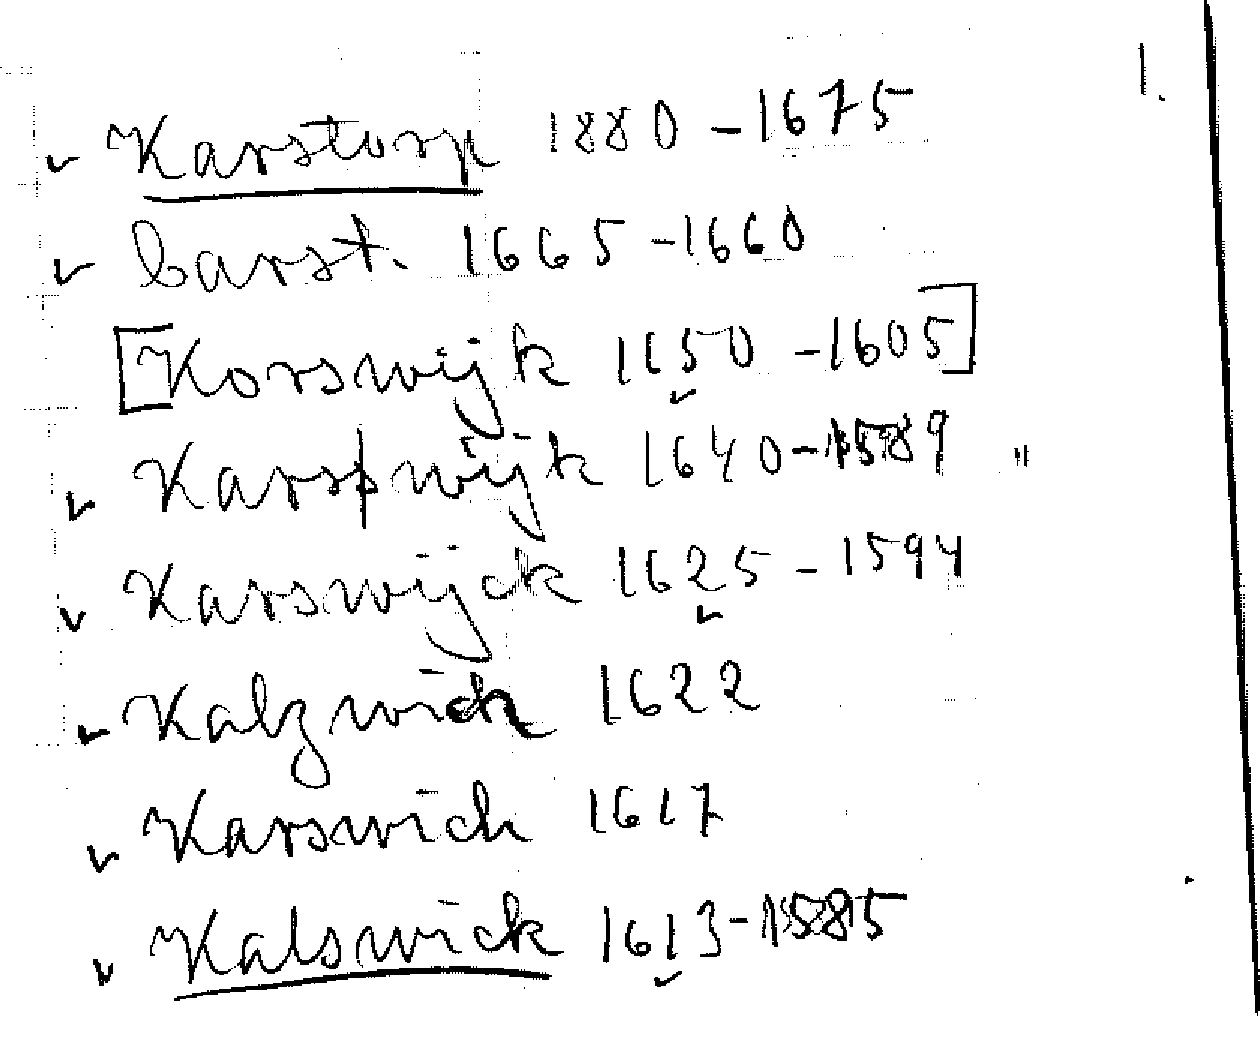 1.
✓ Karstorp 1880 - 1675
✓ Carst. 1665 - 1660
[Korswijk 1650 - 1605]
✓ Karspwijk 1640 - 1589 "
✓ Karswijck 1625 - 1594
✓ Kalzwich 1622
✓ Karswich 1617
✓ Kalswick 1613 - 1585